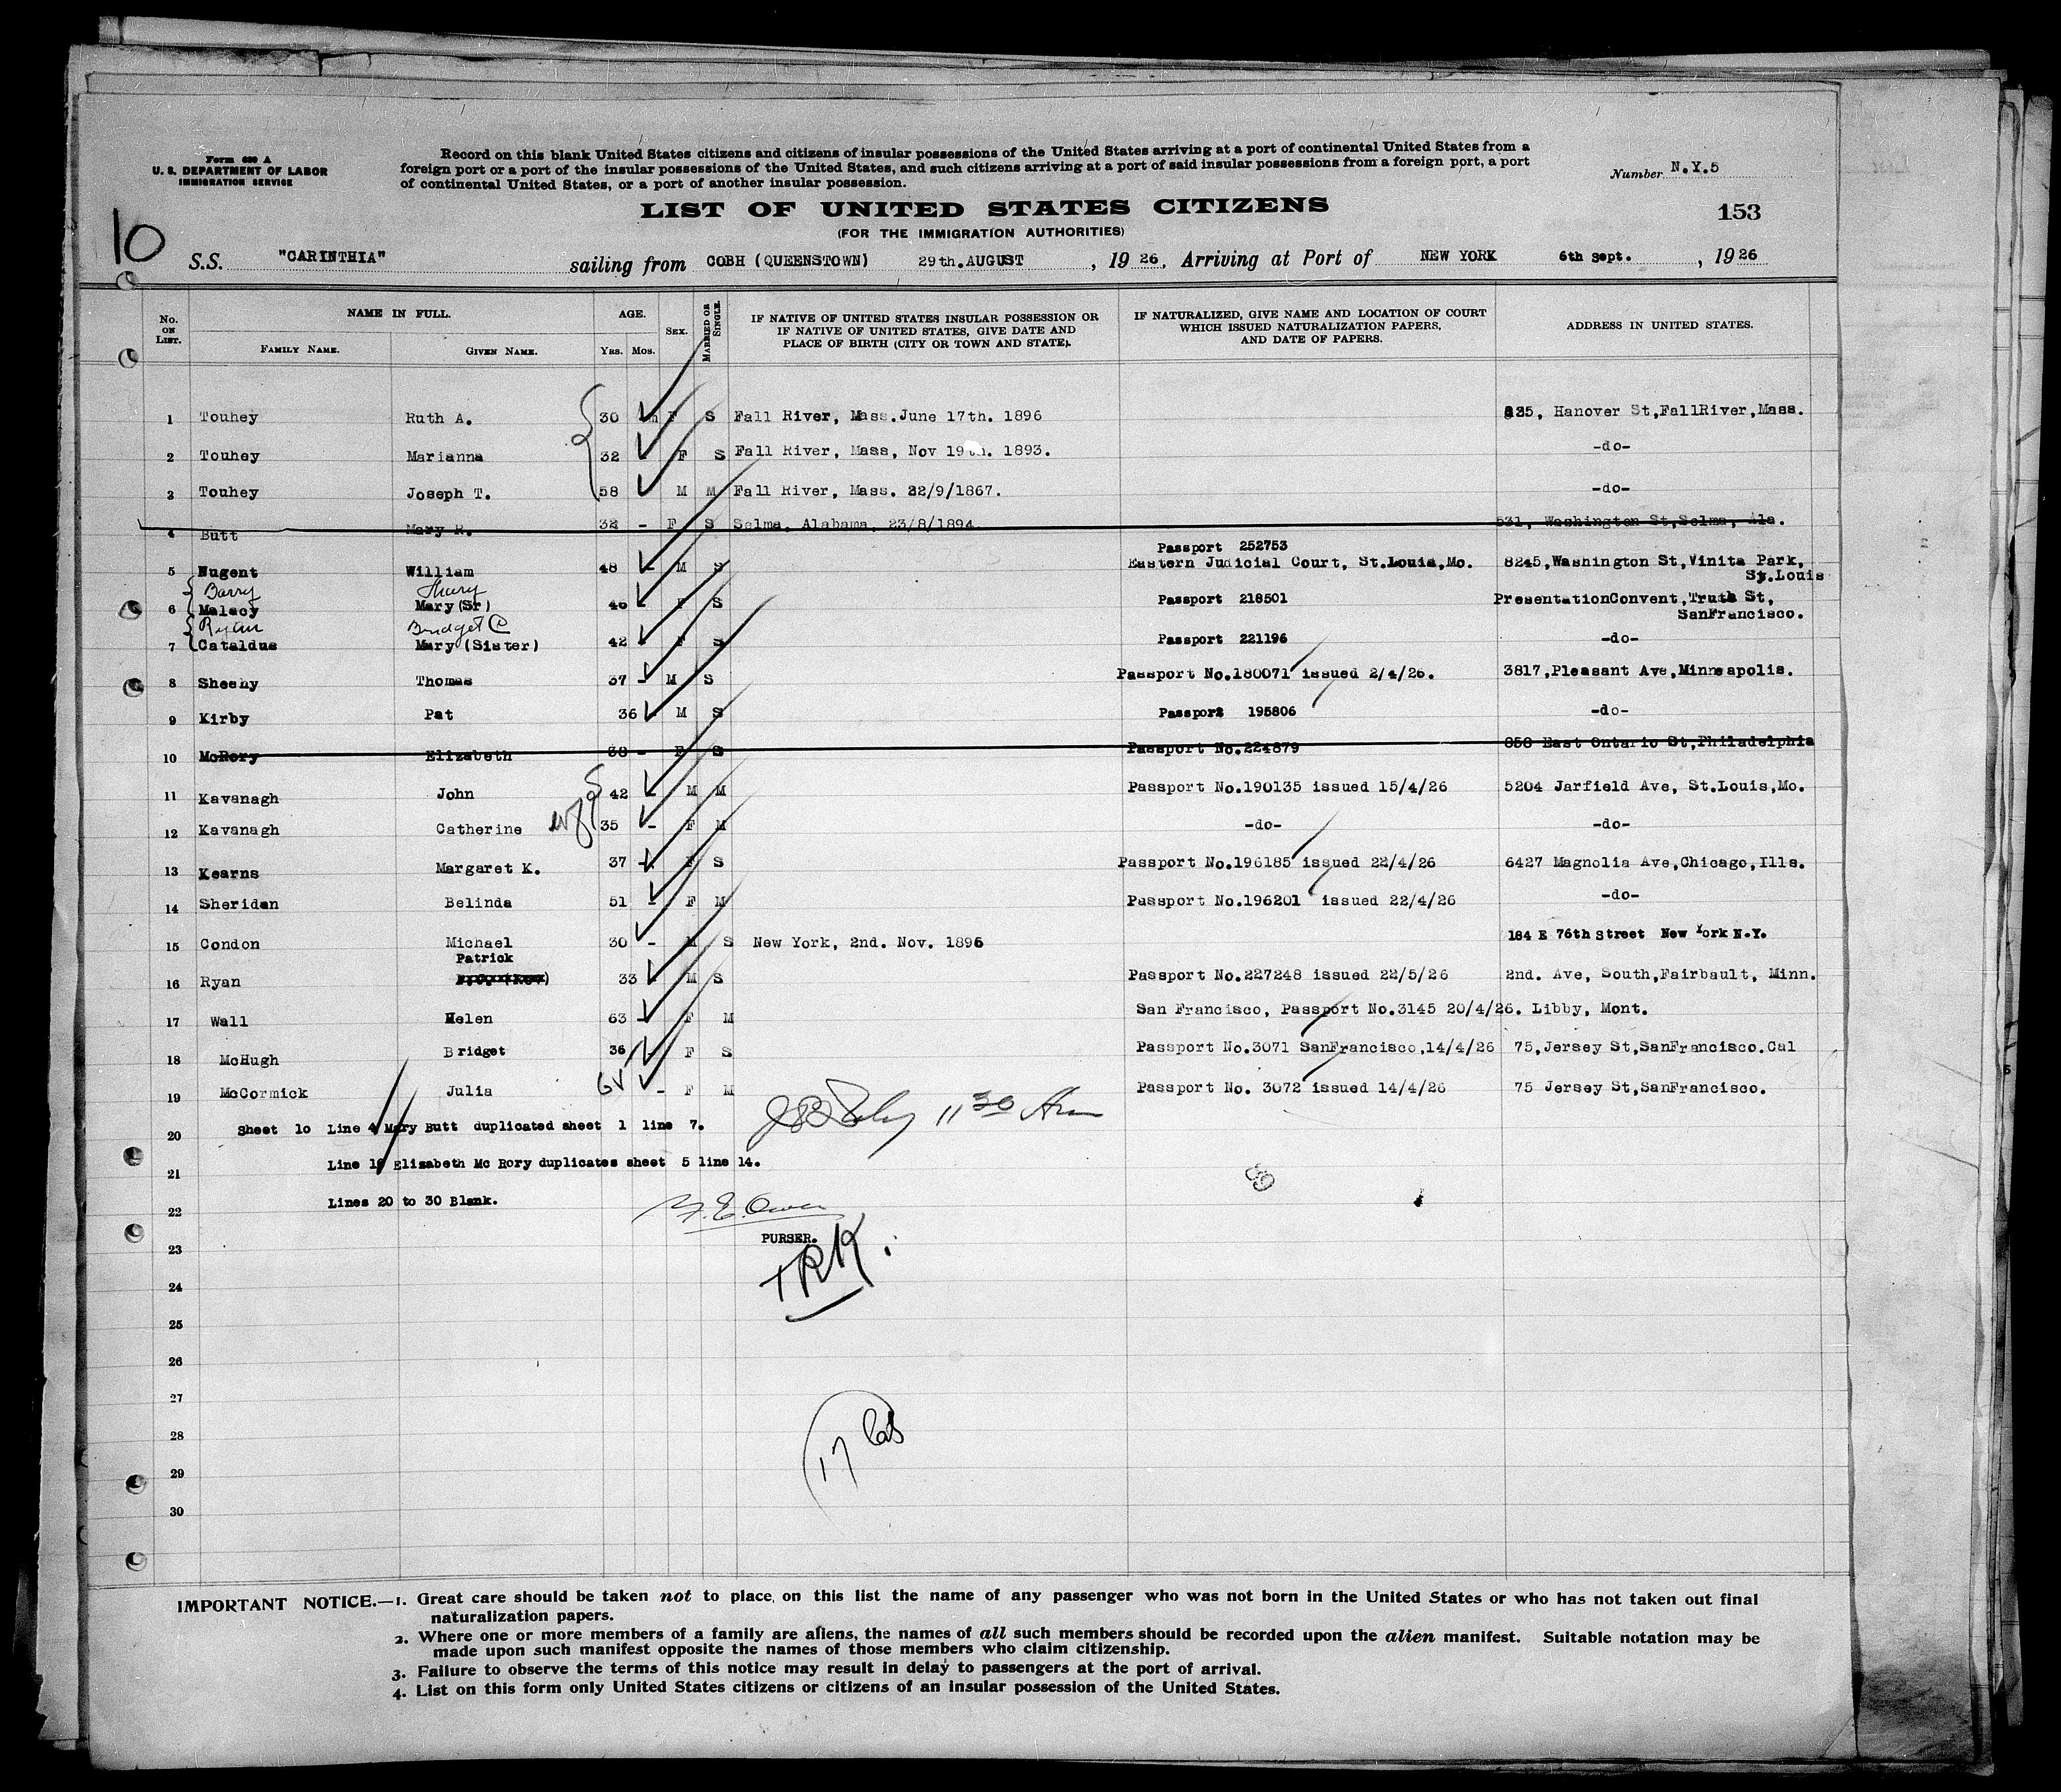 Form 630 A
U. S. DEPARTMENT OF LABOR
IMMIGRATION SERVICE
Record on this blank United States citizens and citizens of insular possessions of the United States arriving at a port of continental United States from a
foreign port or a port of the insular possessions of the United States, and such citizens arriving at a port of said insular possessions from a foreign port, a port
of continental United States, or a port of another insular possession.
Number N.Y.5
LIST OF UNITED STATES CITIZENS
153
(FOR THE IMMIGRATION AUTHORITIES)
10
S.S. "CARINTHIA" sailing from COBH (QUEENSTOWN) 29th.AUGUST, 1926, Arriving at Port of NEW YORK 6th Sept., 1926
No. ON LIST. NAME IN FULL. FAMILY NAME. GIVEN NAME. AGE. YRS. MOS. SEX. MARRIED OR SINGLE. IF NATIVE OF UNITED STATES INSULAR POSSESSION OR IF NATIVE OF UNITED STATES, GIVE DATE AND PLACE OF BIRTH (CITY OR TOWN AND STATE). IF NATURALIZED, GIVE NAME AND LOCATION OF COURT WHICH ISSUED NATURALIZATION PAPERS, AND DATE OF PAPERS. ADDRESS IN UNITED STATES.
1 Touhey Ruth A. 30 F S Fall River, Mass.June 17th. 1896 835, Hanover St,FallRiver,Mass.
2 Touhey Marianna 32 F S Fall River, Mass, Nov 19th. 1893. -do-
3 Touhey Joseph T. 58 M M Fall River, Mass. 22/9/1867. -do-
4 Butt Mary R. 32 - F S Selma, Alabama, 23/8/1894 531, Washington St,Selma, Ala.
Passport 252753
5 Nugent William 48 - M S Eastern Judicial Court, St.Louis,Mo. 8245,Washington St,Vinita Park,
St.Louis
Barry
6 Malacy Mary(Sr) 46 F S Passport 218501 PresentationConvent,Truth St,
SanFrancisco.
Ryan Bridget C
7 Cataldus Mary(Sister) 42 F S Passport 221196 -do-
8 Sheehy Thomas 37 - M S Passport No.180071 issued 2/4/26. 3817,Pleasant Ave,Minneapolis.
9 Kirby Pat 36 M S Passport 195806 -do-
10 McRory Elizabeth 38 - F S Passport No.224879 858 East Ontario St,Philadelphia
11 Kavanagh John 42 M M Passport No.190135 issued 15/4/26 5204 Jarfield Ave, St.Louis,Mo.
12 Kavanagh Catherine 35 - F M -do- -do-
13 Kearns Margaret K. 37 - F S Passport No.196185 issued 22/4/26 6427 Magnolia Ave,Chicago,Ills.
14 Sheridan Belinda 51 - F M Passport No.196201 issued 22/4/26 -do-
15 Condon Michael 30 - M S New York, 2nd. Nov. 1896 184 E 76th Street New York N.Y.
Patrick
16 Ryan 33 M S Passport No.227248 issued 22/5/26 2nd. Ave, South,Fairbault, Minn.
17 Wall Helen 63 - F M San Francisco, Passport No.3145 20/4/26. Libby, Mont.
18 McHugh Bridget 36 - F S Passport No.3071 SanFrancisco,14/4/26 75,Jersey St,SanFrancisco.Cal
19 McCormick Julia - F M Passport No. 3072 issued 14/4/26 75 Jersey St,SanFrancisco.
11 30 Am
20 Sheet 10 Line 4 Mary Butt duplicated sheet 1 line 7.
21 Line 10 Elizabeth Mc Rory duplicates sheet 5 line 14.
22 Lines 20 to 30 Blank.
PURSER.
23
TRK.
24
25
26
27
28
17
29
30
IMPORTANT NOTICE.—1. Great care should be taken not to place on this list the name of any passenger who was not born in the United States or who has not taken out final
naturalization papers.
2. Where one or more members of a family are aliens, the names of all such members should be recorded upon the alien manifest. Suitable notation may be
made upon such manifest opposite the names of those members who claim citizenship.
3. Failure to observe the terms of this notice may result in delay to passengers at the port of arrival.
4. List on this form only United States citizens or citizens of an insular possession of the United States.